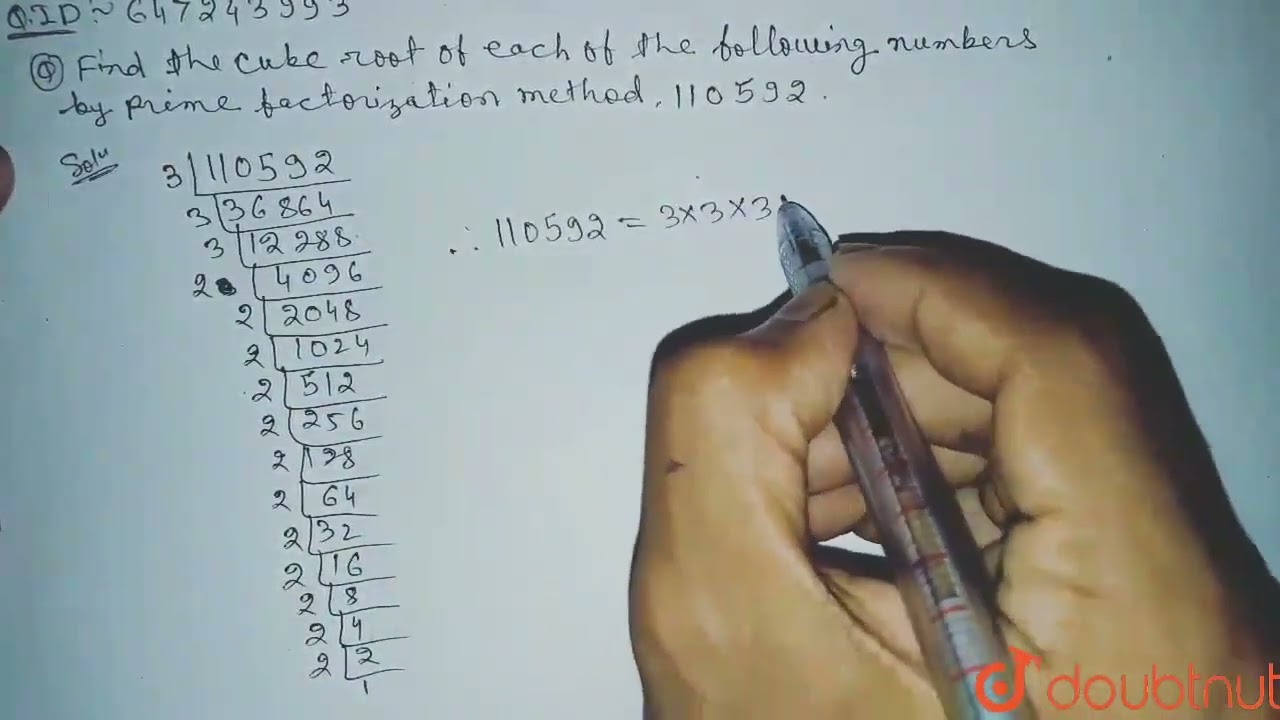 Q.ID ~ 647243993
Q Find the cube root of each of the following numbers
by prime factorization method, 110592.
Solu
3 110592
3 36864
3 12288
2 4096
2 2048
2 1024
2 512
2 256
2 128
2 64
2 32
2 16
2 8
2 4
2 2
1
∴ 110592 = 3×3×3
doubtnut